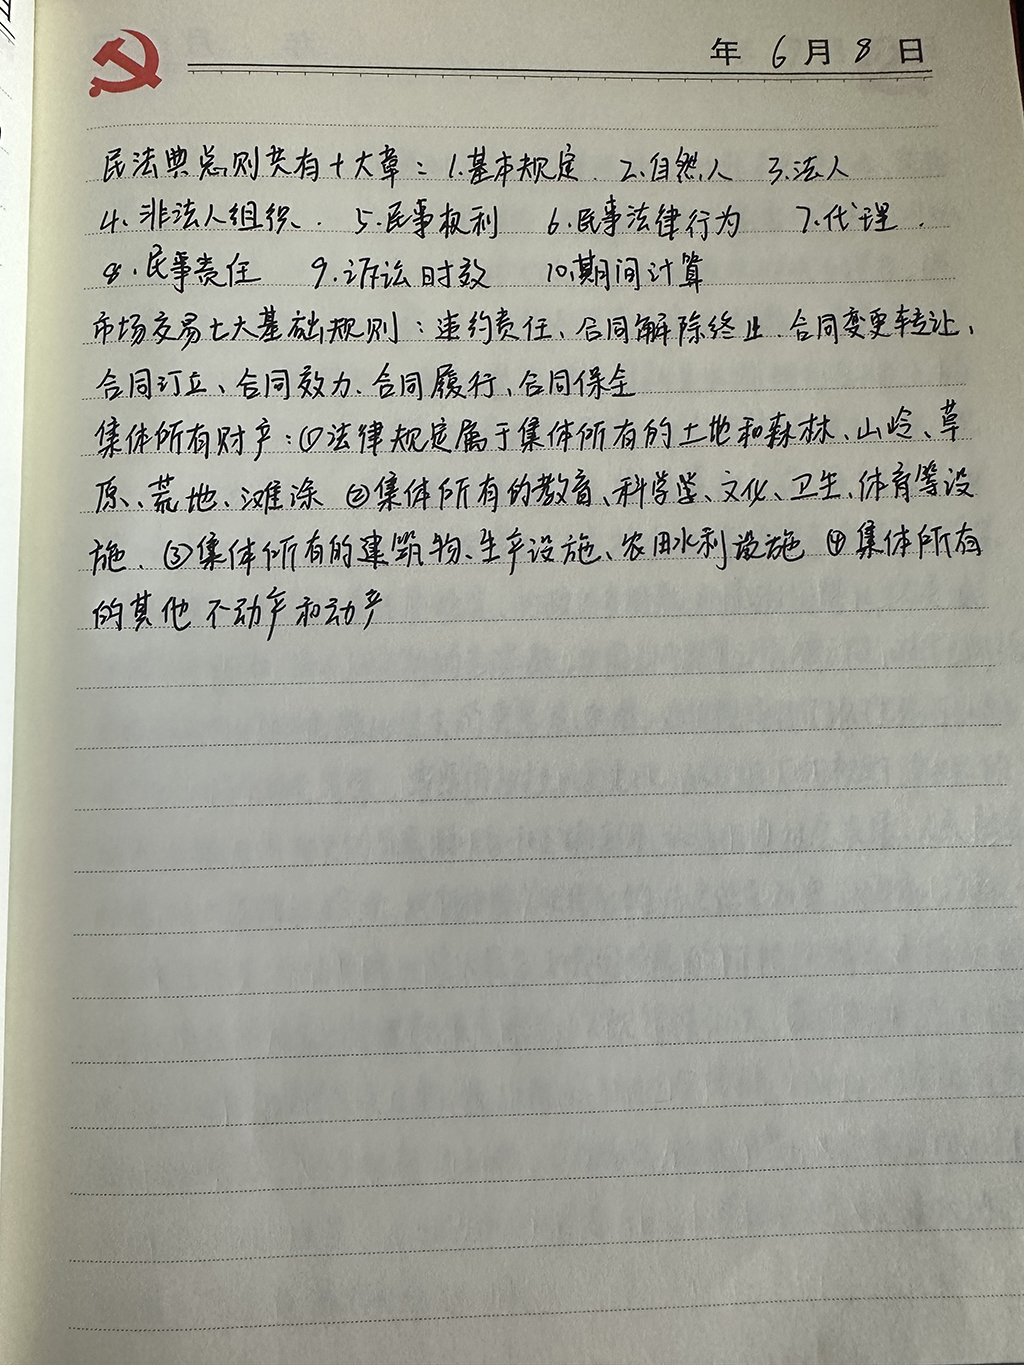 年 6 月 8 日
民法典总则共有十大章：1.基本规定. 2.自然人 3.法人
4、非法人组织、. 5.民事权利 6.民事法律行为 7.代理.
8.民事责任 9.诉讼时效 10.期间计算
市场交易七大基础规则：违约责任、合同解除终止、合同变更转让、
合同订立、合同效力、合同履行、合同保全
集体所有财产：①法律规定属于集体所有的土地和森林、山岭、草
原、荒地、滩涂 ②集体所有的教育、科学学、文化、卫生、体育等设
施、③集体所有的建筑物、生产设施、农田水利设施 ④集体所有
的其他不动产和动产